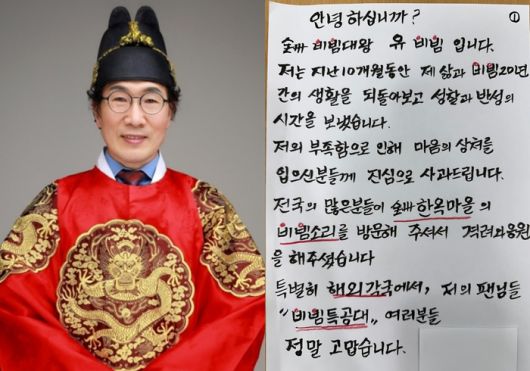 안녕 하십니까? ①
비빔대왕 유 비빔 입니다.
저는 지난10개월동안 제 삶과 비빔20여년
간의 생활을 되돌아보고 성찰과 반성의
시간을 보냈습니다.
저의 부족함으로 인해 마음의 상처를
입으신분들께 진심으로 사과드립니다.
전국의 많은분들이 한옥마을 의
비빔소리를 방문해 주셔서 격려와응원
을 해주셨습니다
특별히 해외각국에서, 저의 팬님들
"비빔특공대" 여러분들
정말 고맙습니다.